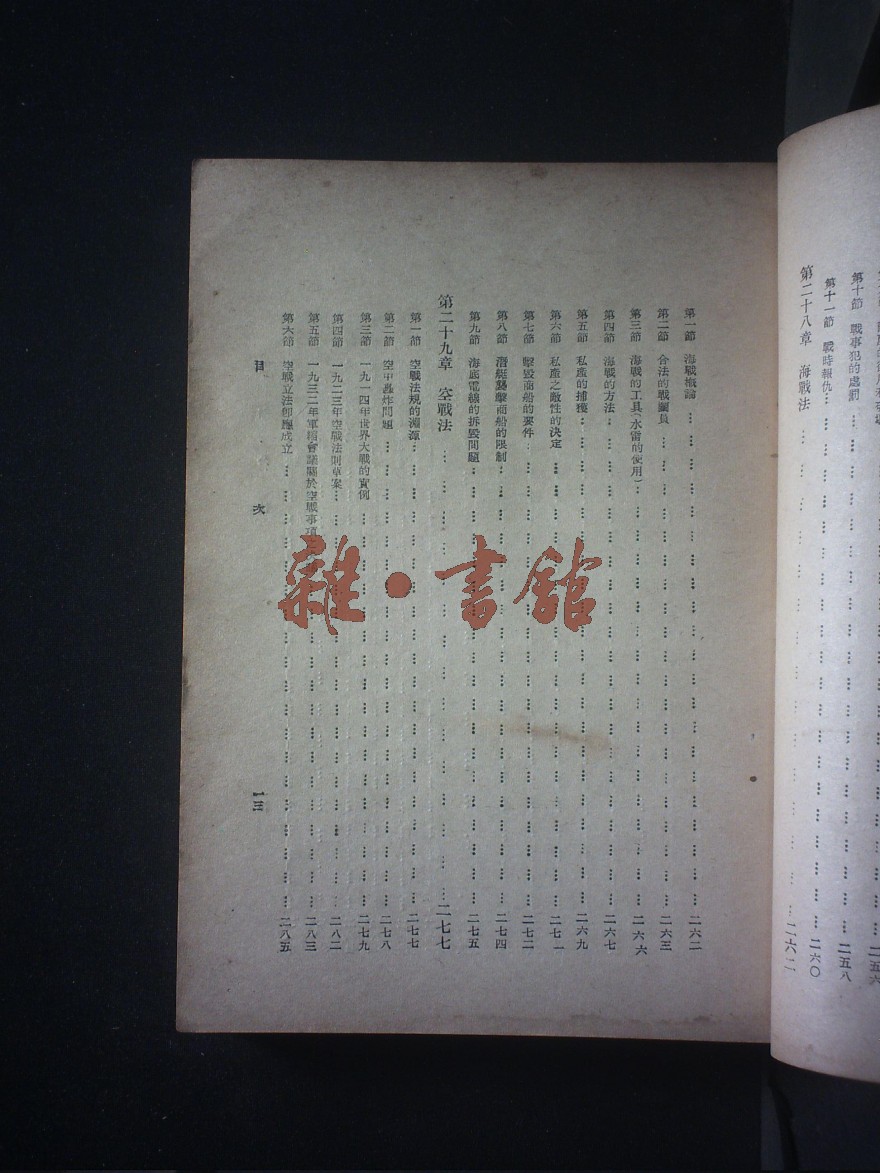 第十節 戰事犯的處罰 二五八
第十一節 戰時報仇 二六〇
第二十八章 海戰法 二六二
第一節 海戰概論 二六二
第二節 合法的戰鬭員 二六三
第三節 海戰的工具(水雷的使用) 二六六
第四節 海戰的方法 二六七
第五節 私產的捕獲 二六九
第六節 私產之敵性的決定 二七一
第七節 擊毀商船的要件 二七二
第八節 潛艇襲擊商船的限制 二七四
第九節 海底電線的拆毀問題 二七五
第二十九章 空戰法 二七七
第一節 空戰法規的淵源 二七七
第二節 空中轟炸問題 二七八
第三節 一九一四年世界大戰的實例 二七九
第四節 一九二三年空戰法則草案 二八二
第五節 一九三二年軍縮會議關於空戰事項 二八三
第六節 空戰立法卽應成立 二八五
目 次
一三
雜·書館